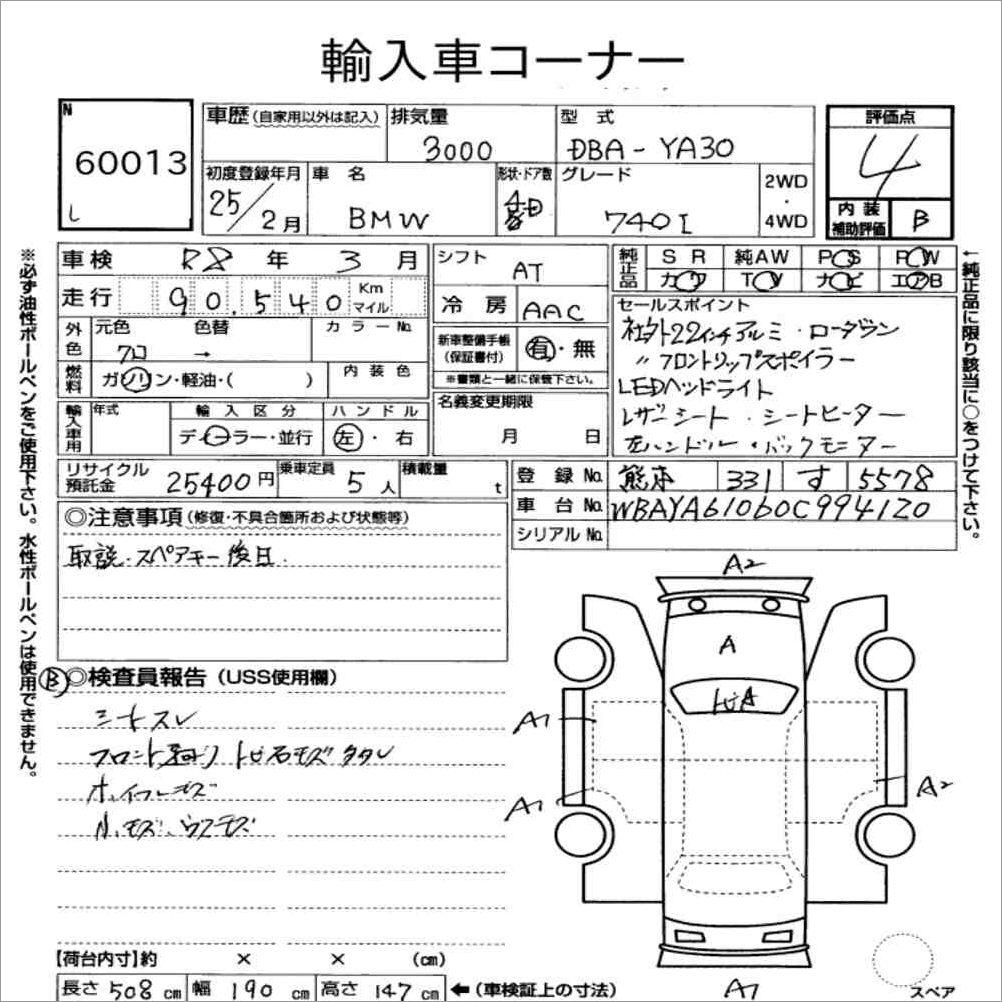 輸入車コーナー
N
60013
し
車歴 (自家用以外は記入)
排気量
3000
型式
DBA-YA30
評価点
4
初度登録年月
25/2月
車名
BMW
形状・ドア数
4D
グレード
740I
2WD
・
4WD
内装
補助評価
B
車検 R8年 3月
走行 90,540 Km
マイル
シフト
AT
冷房 AAC
純正品
SR 純AW PS PW
カワ TV ナビ エアB
外色
元色 色替 カラーNo.
クロ →
燃料
ガソリン・軽油・( )
内装色
新車整備手帳
(保証書付)
有・無
※書類と一緒に保管下さい。
セールスポイント
社外22インチアルミ・ローダウン
〃フロントリップスポイラー
LEDヘッドライト
レザーシート・シートヒーター
左ハンドル・バックモニター
輸入車用
年式
輸入区分
ディーラー・並行
ハンドル
左・右
名義変更期限
月 日
リサイクル
預託金
25400円
乗車定員
5人
積載量
t
登録No. 熊本 331 す 5578
車台No. WBAYA61060C994120
シリアルNo.
◎注意事項 (修復・不具合箇所および状態等)
取説・スペアキー後日.
B
◎検査員報告 (USS使用欄)
シートスレ
フロント廻り トビ石キズタタレ
ホイールキズ
小キズ、ウスキズ
A2
A
トビA
A1
A1
A2
A1
スペア
【荷台内寸】約 × × (cm)
長さ 508 cm 幅 190 cm 高さ 147 cm ←(車検証上の寸法)
※必ず油性ボールペンをご使用下さい。水性ボールペンは使用できません。
←純正品に限り該当に○をつけて下さい。